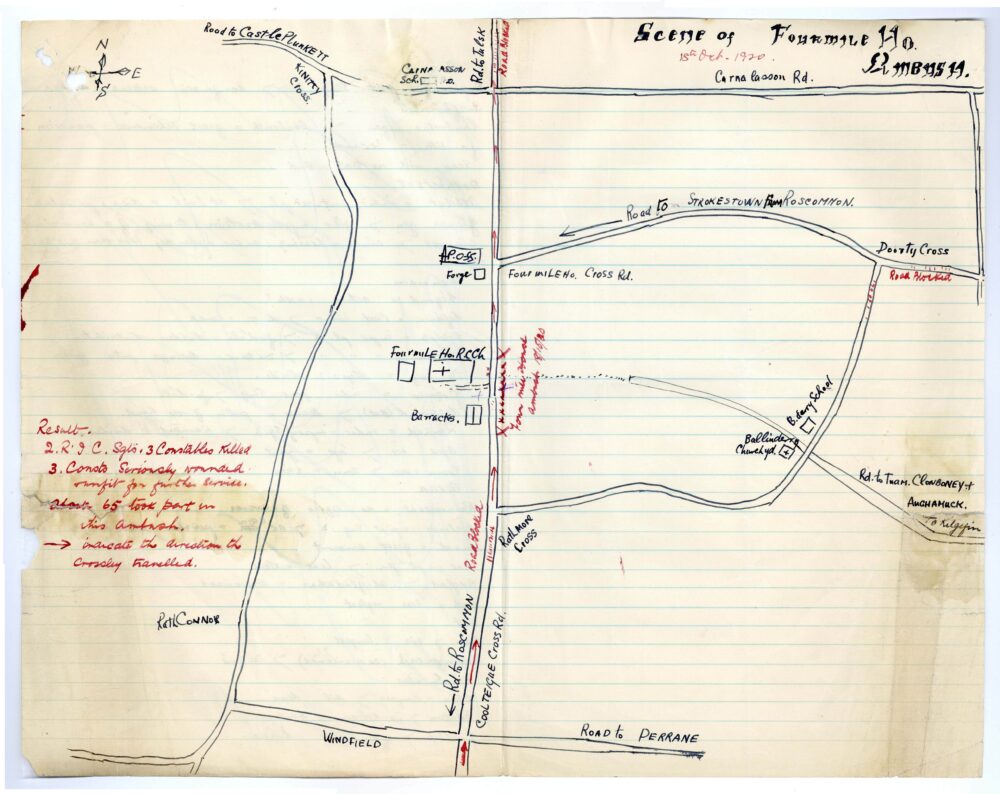 Scene of Fourmile Ho.
Ambush.
18th Oct. 1920
Road to Castle Plunkett
N
E
S
Kinitty
Cross
Carnalasson
Sch. Ho.
Rd. to Tulsk
Road Blocked
Carnalasson Rd.
Road to Strokestown from Roscommon.
Doorty Cross
Road Blocked
A.P. Offs
Forge
Fourmile Ho. Cross Rd.
Fourmile Ho. R.C. Ch
Four mile House
Ambush
Barracks.
B.derry School
Ballinderry
Churchyd.
Result.
2. R.I.C. Sgts. 3 Constables Killed
3. Consts Seriously wounded
unfit for further service.
About 65 took part in
this Ambush.
→ indicate the direction the
Crossley travelled.
Rd. to Tuam. Clonboney +
Aughamuck.
To Kilgefin
Rathmore
Cross
Road Blocked
RathConnor
Rd. to Roscommon
Coolteigue Cross Rd.
Windfield
Road to Perrane